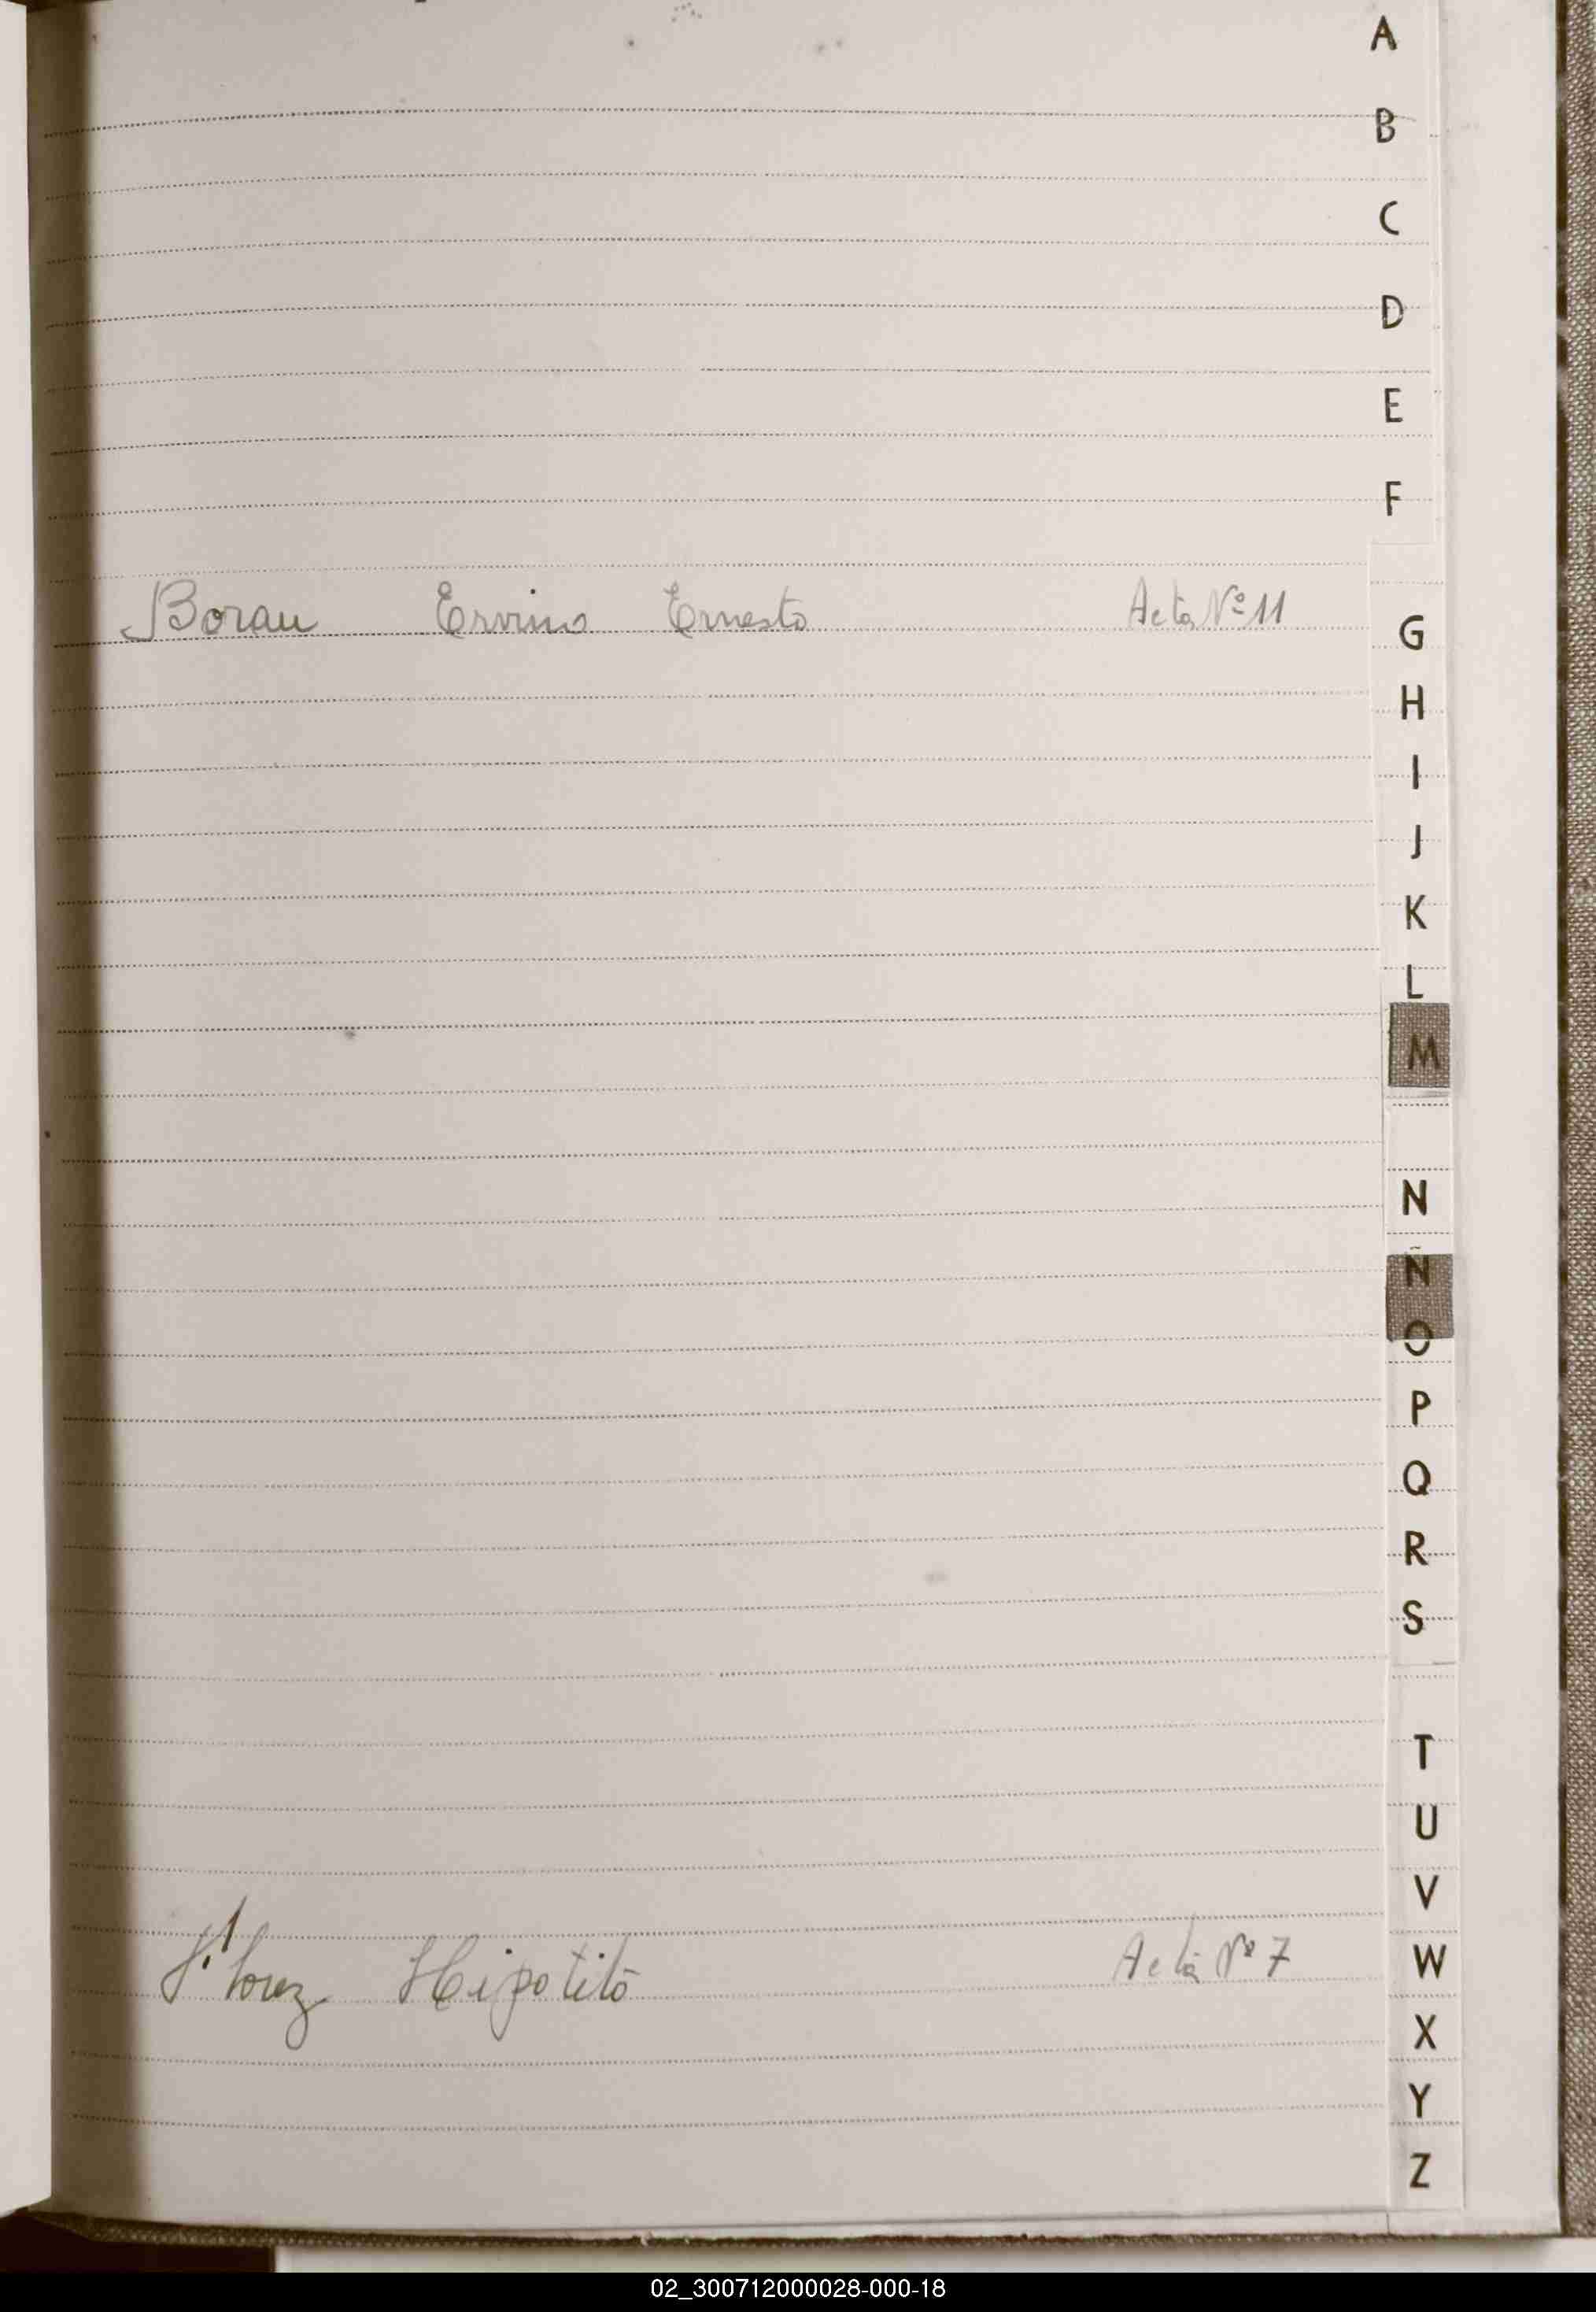 A
B
C
D
E
F
Borau Ervino Ernesto Acta Nº 11
G
H
I
J
K
L
M
N
Ñ
O
P
Q
R
S
T
U
V
Hipolito Acta Nº 7
W
X
Y
Z
02_300712000028-000-18